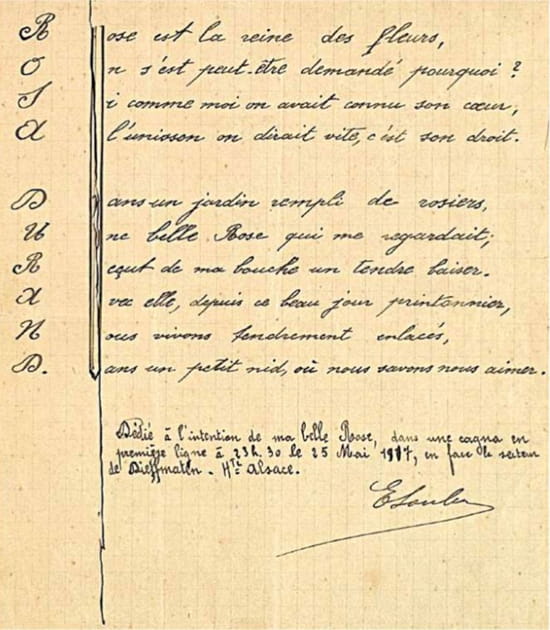 Rose est la reine des fleurs,
On s'est peut-être demandé pourquoi?
Si comme moi on avait connu son cœur,
A l'unisson on dirait vite, c'est son droit.
Dans un jardin rempli de rosiers,
Une belle Rose qui me regardait;
Reçut de ma bouche un tendre baiser.
Avec elle, depuis ce beau jour printannier,
Nous vivons tendrement enlacés,
D.ans un petit nid, où nous savons nous aimer.
Dédié à l'intention de ma belle Rose, dans une cagna en
première ligne à 23h.30 le 25 Mai 1917, en face le secteur
de Dieffmatten. Hte Alsace.